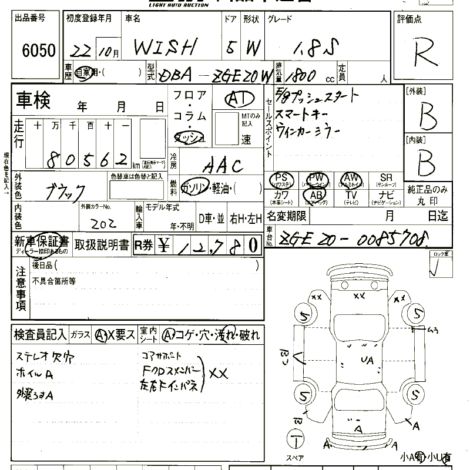 LIGHT AUTO AUCTION
出品番号 6050
初度登録年月 22年10月
車名 WISH
ドア 形状 5 W
グレード 1.8S
評価点 R
車歴 自家用
型式 DBA-ZGE20W
排気量 1800 cc
定員 人
車検 年 月 日
フロア・コラム・
AT
MTのみ記入 速
セールスポイント
プッシュスタート
スマートキー
ウィンカーミラー
[外装] B
[内装] B
走行 十万千百十 km
80562
冷房 AAC
外装色 ブラック
色替車は色替と記入
燃料 ガソリン・軽油・( )
PS PW AW SR
カワ AB TV ナビ
純正品のみ丸印
内装色
外装カラーNo. 202
輸入車 モデル年式 年・不明
D車・並 右H・左H
名変期限 月 日迄
新車保証書
ディーラー捺印あるもの
取扱説明書
R券 ¥12,780
車台No. ZGE20-0085708
注意事項
後日品( )
不具合箇所等
検査員記入
ガラス A・X要ス
室内シート A・コゲ・穴・汚れ・破れ
ステレオ欠穴
ホイルA
コアサポート
左右Fインパネ
XX
スペア